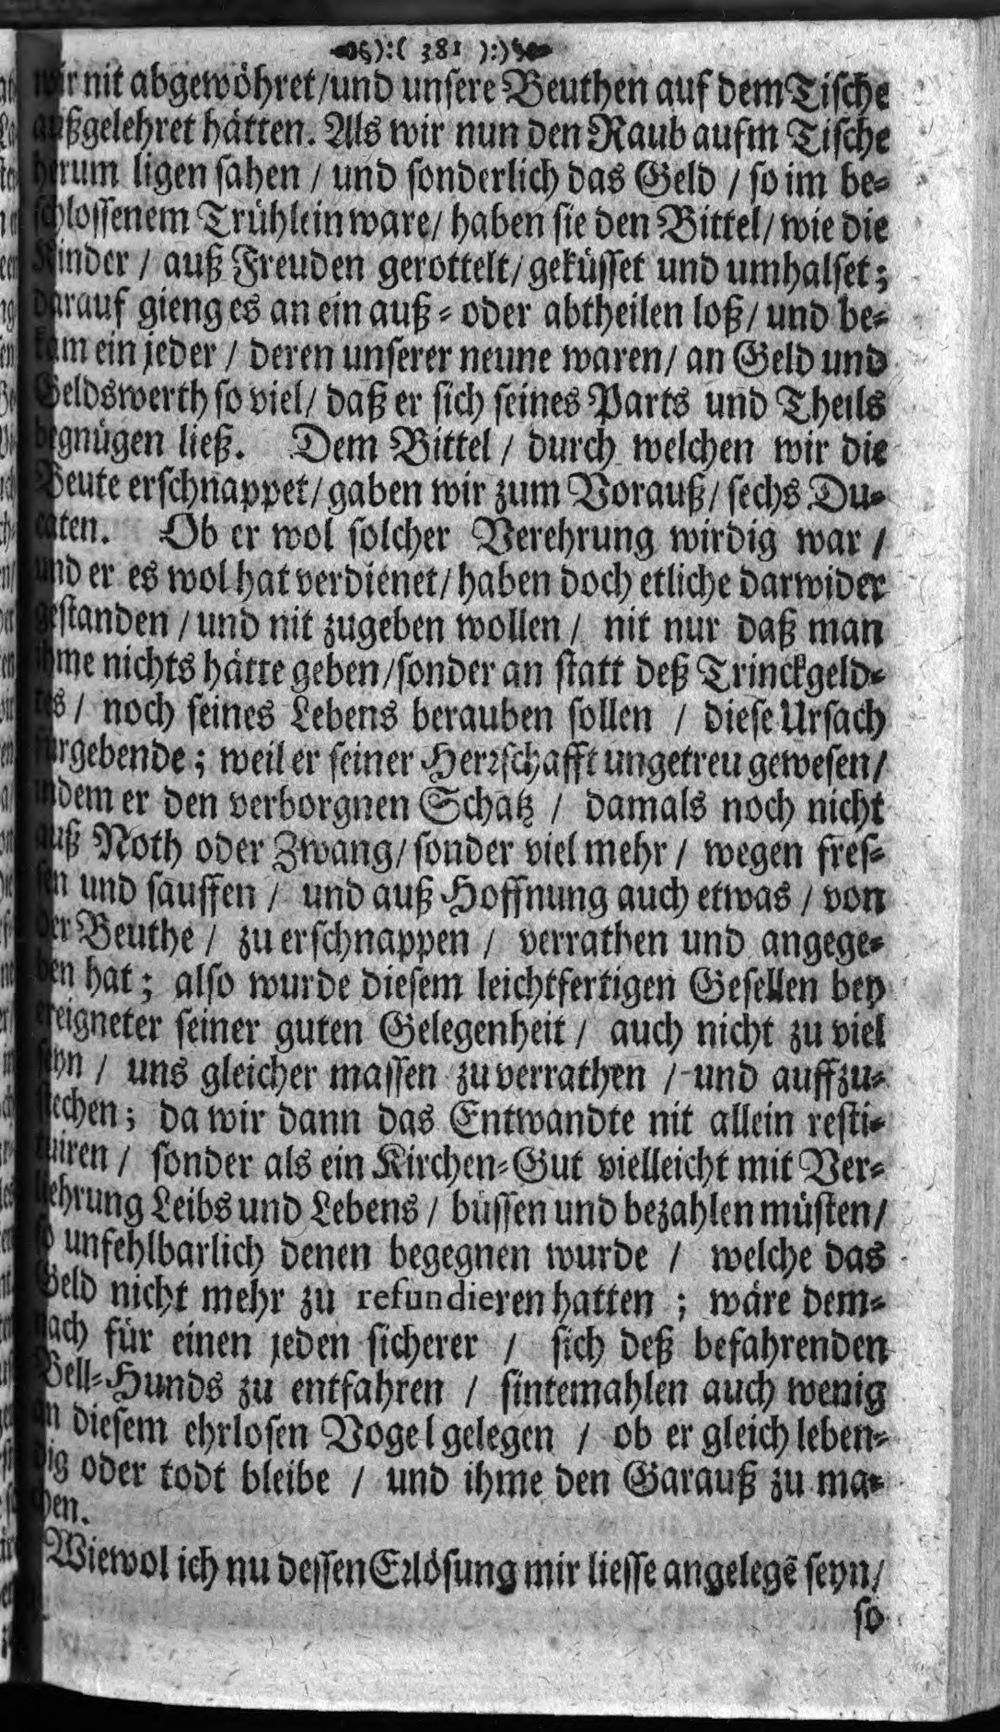 ):( 381 ):)
wir nit abgewöhret / und unsere Beuthen auf dem Tische
außgelehret hätten. Als wir nun den Raub aufm Tische
herum ligen sahen / und sonderlich das Geld / so im be-
schlossenem Trühlein ware / haben sie den Bittel / wie die
Kinder / auß Freuden gerottelt / geküsset und umhalset;
darauf gieng es an ein auß- oder abtheilen loß / und be-
kam ein jeder / deren unserer neune waren / an Geld und
Geldswerth so viel / daß er sich seines Parts und Theils
begnügen ließ. Dem Bittel / durch welchen wir die
Beute erschnappet / gaben wir zum Vorauß / sechs Du-
caten. Ob er wol solcher Verehrung wirdig war /
und er es wol hat verdienet / haben doch etliche darwider
gestanden / und nit zugeben wollen / nit nur daß man
ihme nichts hätte geben / sonder an statt deß Trinckgeld-
tes / noch seines Lebens berauben sollen / diese Ursach
fürgebende; weil er seiner Herrschafft ungetreu gewesen /
indem er den verborgnen Schatz / damals noch nicht
auß Noth oder Zwang / sonder viel mehr / wegen fres-
sen und sauffen / und auß Hoffnung auch etwas / von
der Beuthe / zu erschnappen / verrathen und angege-
ben hat; also wurde diesem leichtfertigen Gesellen bey
ereigneter seiner guten Gelegenheit / auch nicht zu viel
seyn / uns gleicher massen zu verrathen / und auffzu-
stechen; da wir dann das Entwandte nit allein resti-
tuiren / sonder als ein Kirchen-Gut vielleicht mit Ver-
liehrung Leibs und Lebens / büssen und bezahlen müsten /
so unfehlbarlich denen begegnen wurde / welche das
Geld nicht mehr zu refundieren hatten; wäre dem-
nach für einen jeden sicherer / sich deß befahrenden
Bell-Hunds zu entfahren / sintemahlen auch wenig
an diesem ehrlosen Vogel gelegen / ob er gleich leben-
dig oder todt bleibe / und ihme den Garauß zu ma-
chen.
Wiewol ich nu dessen Erlösung mir liesse angelegē seyn /
so